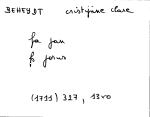 BEHEYDT cristijine clare
fa jan
fs josus
(1711) 327, 1320